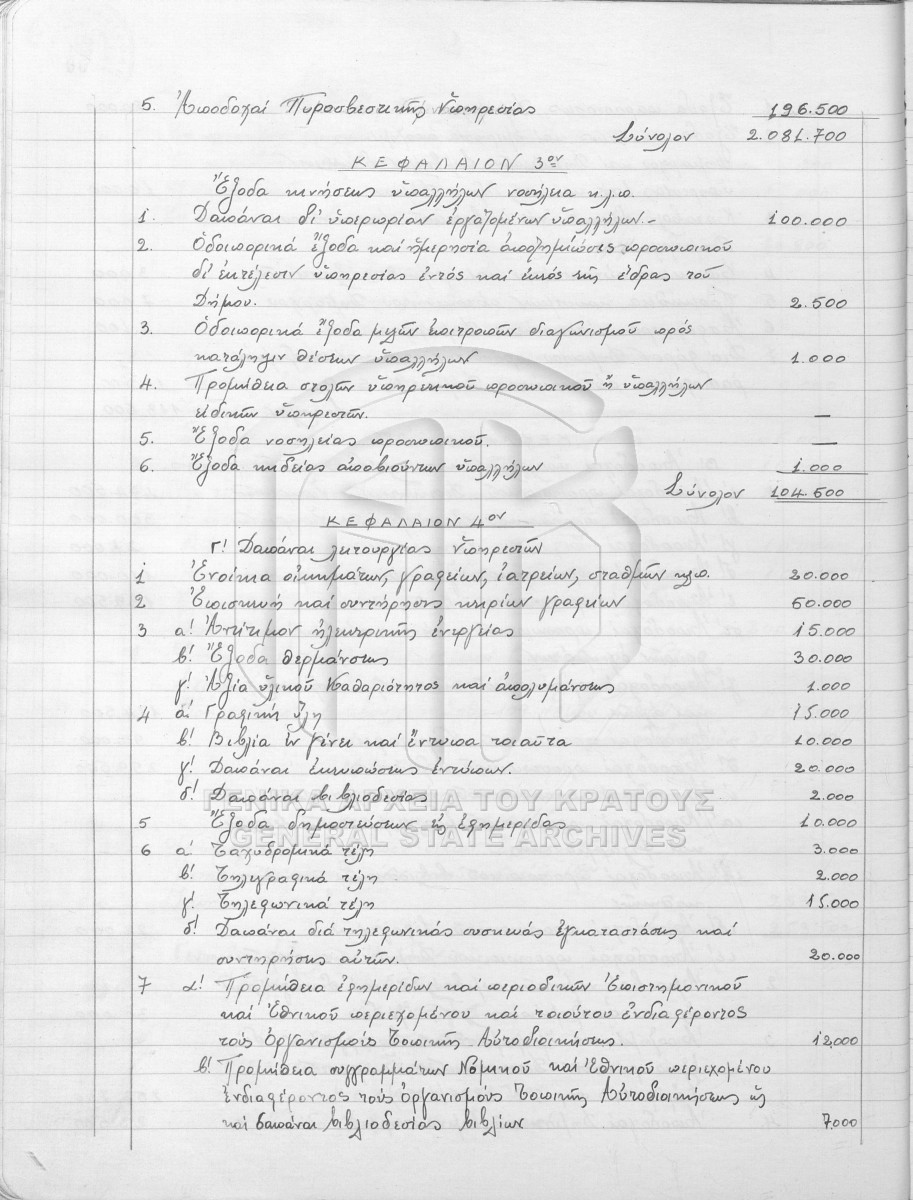 5. Ἀποδοχαί Πυροσβεστικῆς Ὑπηρεσίας 196.500
Σύνολον 2.081.700
ΚΕΦΑΛΑΙΟΝ 3ον
Ἔξοδα κινήσεως ὑπαλλήλων νοσήλεια κ.λ.π.
1. Δαπάναι δι' ὑπερωρίαν ἐργαζομένων ὑπαλλήλων.- 100.000
2. Ὁδοιπορικά ἔξοδα καί ἡμερησία ἀποζημίωσις προσωπικοῦ
δι' ἐκτέλεσιν ὑπηρεσίας ἐντός καί ἐκτός τῆς ἕδρας τοῦ
Δήμου. 2.500
3. Ὁδοιπορικά ἔξοδα μελῶν ἐπιτροπῶν διαγωνισμοῦ πρός
κατάληψιν θέσεων ὑπαλλήλων 1.000
4. Προμήθεια στολῶν ὑπηρετικοῦ προσωπικοῦ ἤ ὑπαλλήλων
εἰδικῶν ὑπηρεσιῶν. —
5. Ἔξοδα νοσηλείας προσωπικοῦ. —
6. Ἔξοδα κηδείας ἀποβιούντων ὑπαλλήλων 1.000
Σύνολον 104.500
ΚΕΦΑΛΑΙΟΝ 4ον
Γ! Δαπάναι λειτουργίας Ὑπηρεσιῶν
1 Ἐνοίκια οἰκημάτων, γραφείων, ἰατρείων, σταθμῶν κλπ. 20.000
2 Ἐπισκευή καί συντήρησις κτιρίων γραφείων 50.000
3 α! Ἀντίτιμον ἠλεκτρικῆς ἐνεργείας 15.000
β! Ἔξοδα θερμάνσεως 30.000
γ! Ἀξία ὑλικοῦ Καθαριότητος καί ἀπολυμάνσεως 1.000
4 α! Γραφική ὕλη 15.000
β! Βιβλία ἐν γένει καί ἔντυπα τοιαῦτα 10.000
γ! Δαπάναι ἐκτυπώσεως ἐντύπων. 20.000
δ! Δαπάναι βιβλιοδεσίας 2.000
ΓΕΝΙΚΑ ΑΡΧΕΙΑ ΤΟΥ ΚΡΑΤΟΥΣ
5 Ἔξοδα δημοσιεύσεων εἰς ἐφημερίδας 10.000
GENERAL STATE ARCHIVES
6 α! Ταχυδρομικά τέλη 3.000
β! Τηλεγραφικά τέλη 2.000
γ! Τηλεφωνικά τέλη 15.000
δ! Δαπάναι διά τηλεφωνικάς συσκευάς ἐγκαταστάσεις καί
συντηρήσεις αὐτῶν. 20.000
7 α! Προμήθεια ἐφημερίδων καί περιοδικῶν Ἐπιστημονικοῦ
καί Ἐθνικοῦ περιεχομένου καί τοιούτου ἐνδιαφέροντος
τούς Ὀργανισμούς Τοπικῆς Αὐτοδιοικήσεως. 12,000
β! Προμήθεια συγγραμμάτων Νομικοῦ καί Ἐθνικοῦ περιεχομένου
ἐνδιαφέροντος τούς ὀργανισμούς Τοπικῆς Αὐτοδιοικήσεως
καί δαπάναι βιβλιοδεσίας βιβλίων 7.000